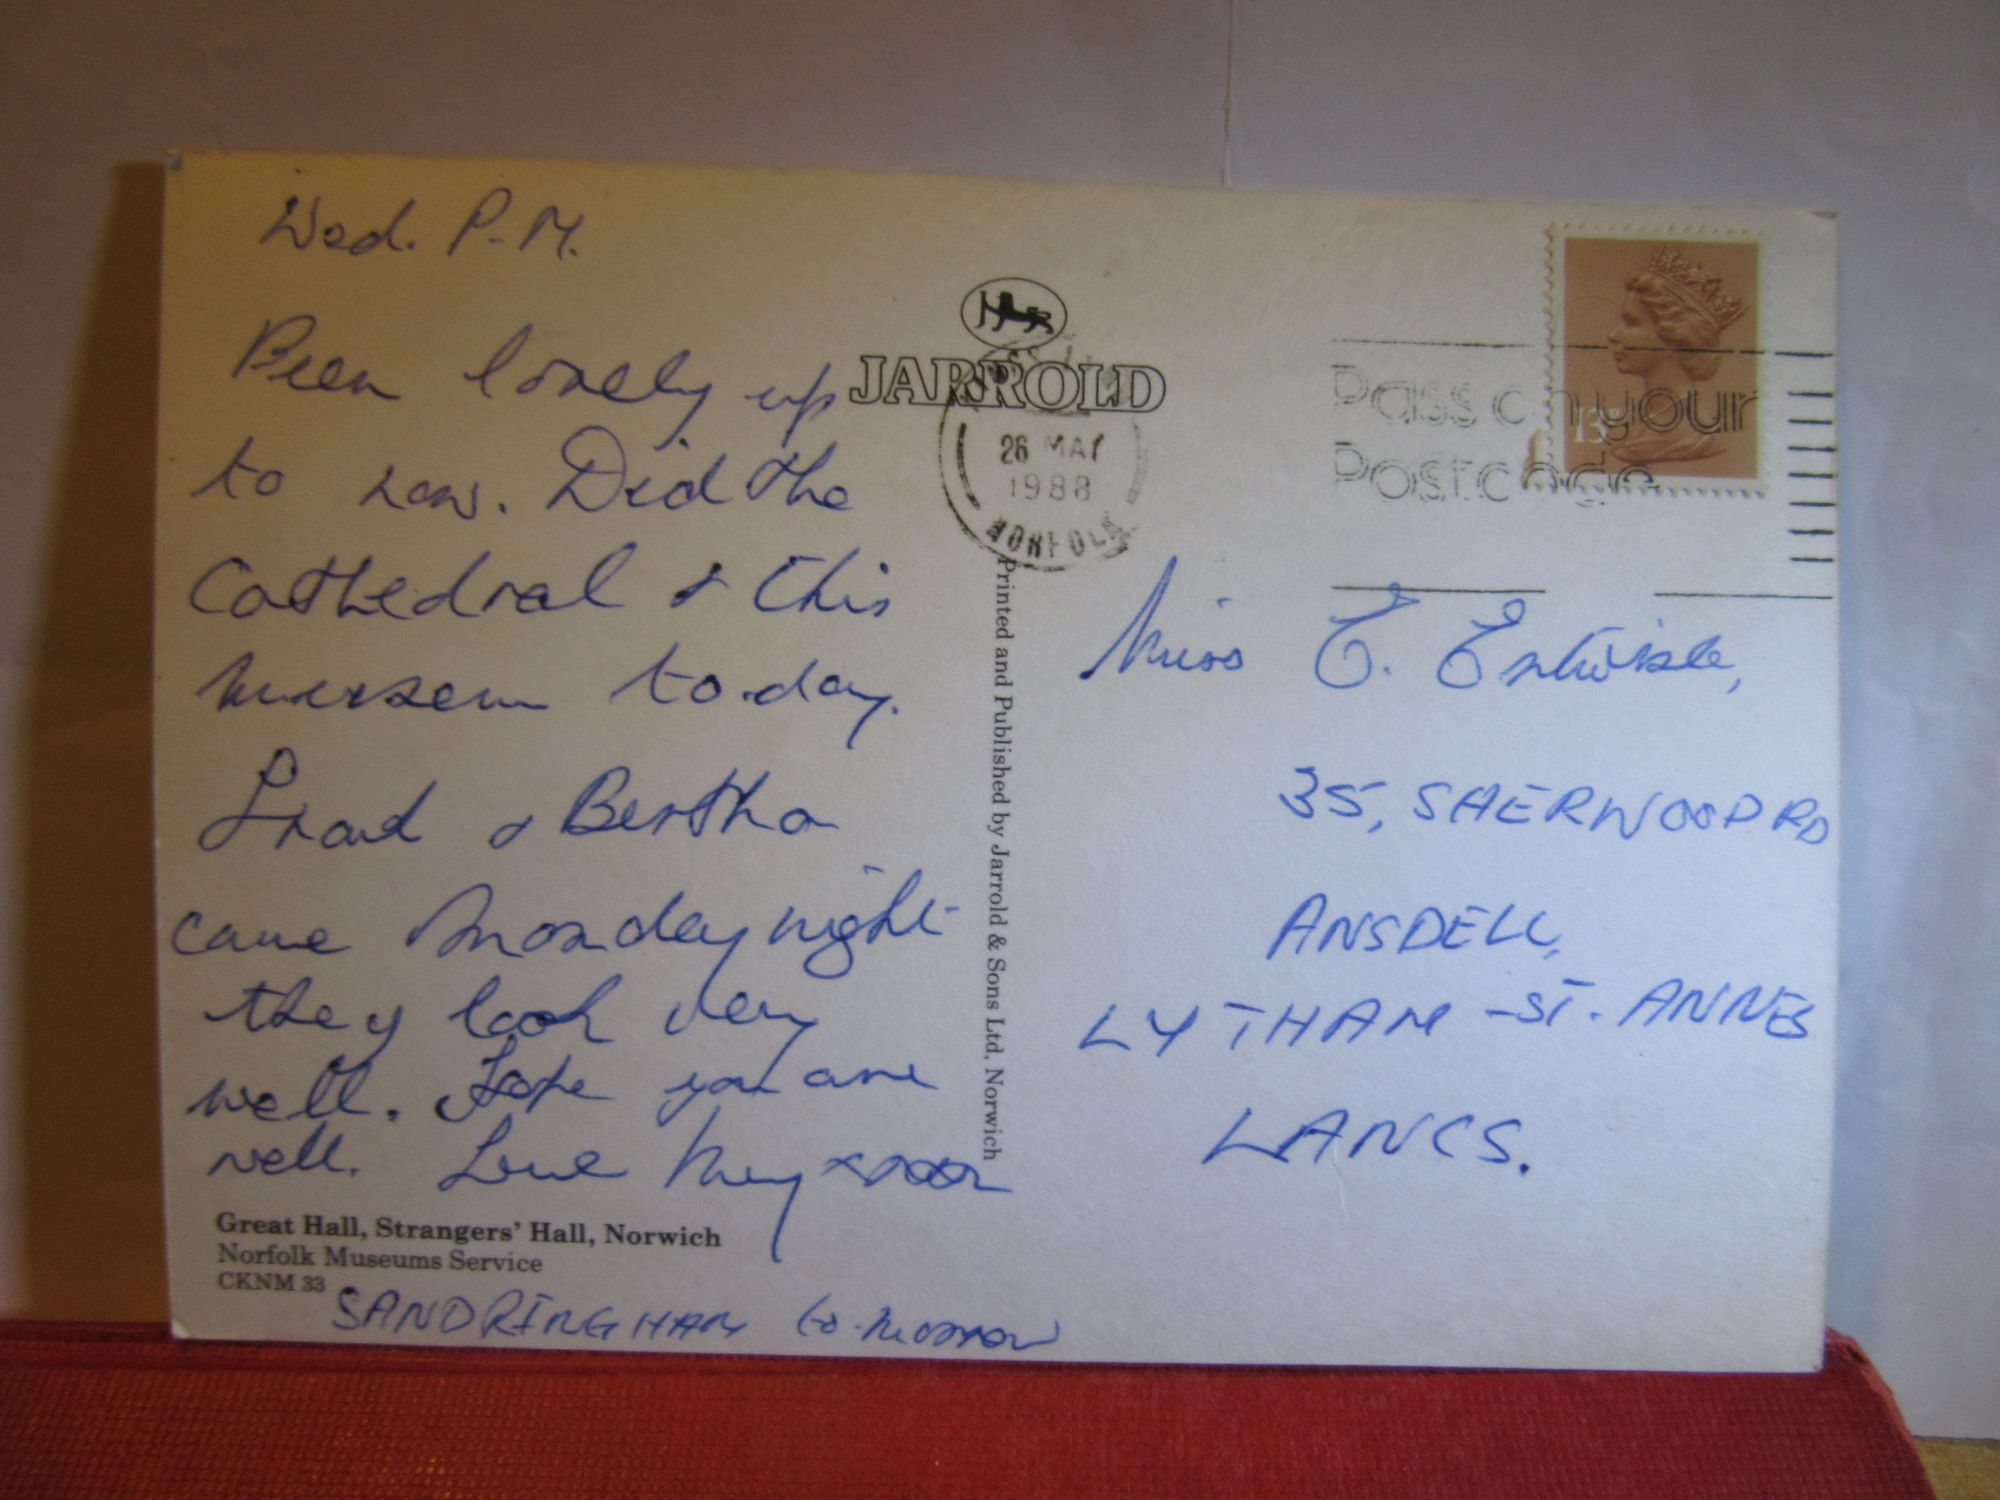 Wed. P.M.
Been lonely up
to now. Did the
Cathedral & this
museum to-day.
& Bertha
came Monday night
they look very
well. Hope you are
well. Love
Great Hall, Strangers' Hall, Norwich
Norfolk Museums Service
CKNM 33
SANDRINGHAM to-morrow
JARROLD
26 MAY
1988
NORFOLK
Printed and Published by Jarrold & Sons Ltd, Norwich
Pass on your
Postcode
13
Miss E. Entwisle,
35, SHERWOOD RD
ANSDELL,
LYTHAM-ST. ANNES
LANCS.